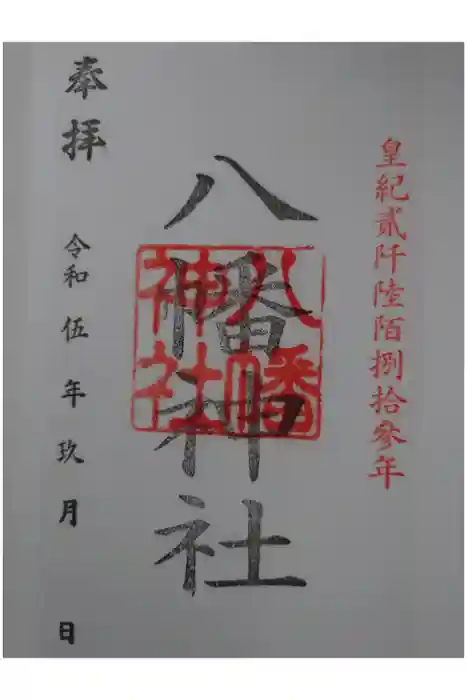 皇紀貳阡陸陌捌拾參年
八幡神社
八幡神社
奉拝
令和伍年玖月 日